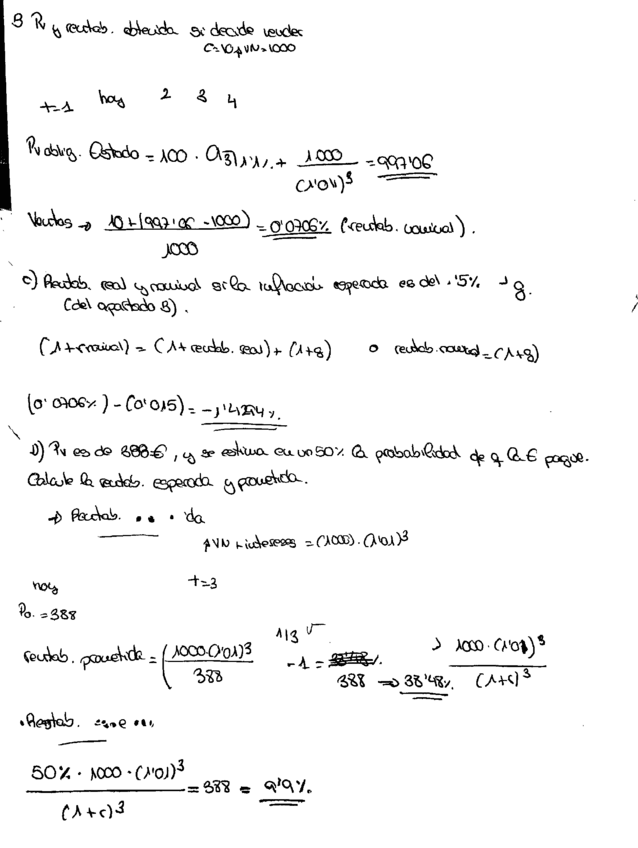 B Pv y rentab. obtenida si decide vender
C=10 y VN=1000
t=1 hoy 2 3 4
Pv oblig. Estado = 100 · a3]1'1%. + 1000/(1'011)^3 = 997'06
Ventas → 10+(997'06-1000)/1000 = 0'0706% (rentab. nominal).
c) Rentab. real y nominal si la inflación esperada es del 1'5% → g.
(del apartado B).
(1+nominal) = (1+rentab. real)+(1+g) o rentab. = (1+g)
(0'0706%) - (0'015) = -1'4294%.
D) Pv es de 388€, y se estima en un 50% la probabilidad de q la E pague.
Calcule la rentab. esperada y prometida.
→ Rentab. da
VN + intereses = (1000)·(1'01)^3
hoy t=3
Po. = 388
rentab. prometida = (1000·(1'01)^3/388 1/3 -1 = 388 → 38'48%. 1000·(1'01)^3/(1+r)^3
· Rentab.
50% · 1000 · (1'01)^3/(1+r)^3 = 388 = 9'9%.